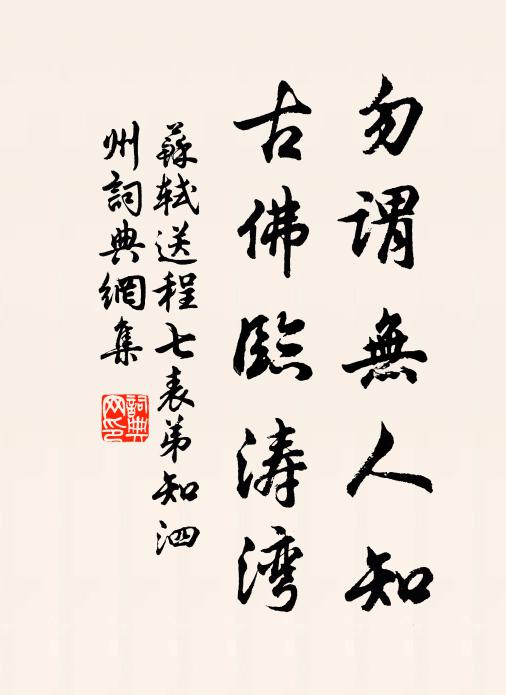 勿謂無人知
古佛臨涛湾
蘇軾送程七表弟知泗
州詞典網集
詞典网印